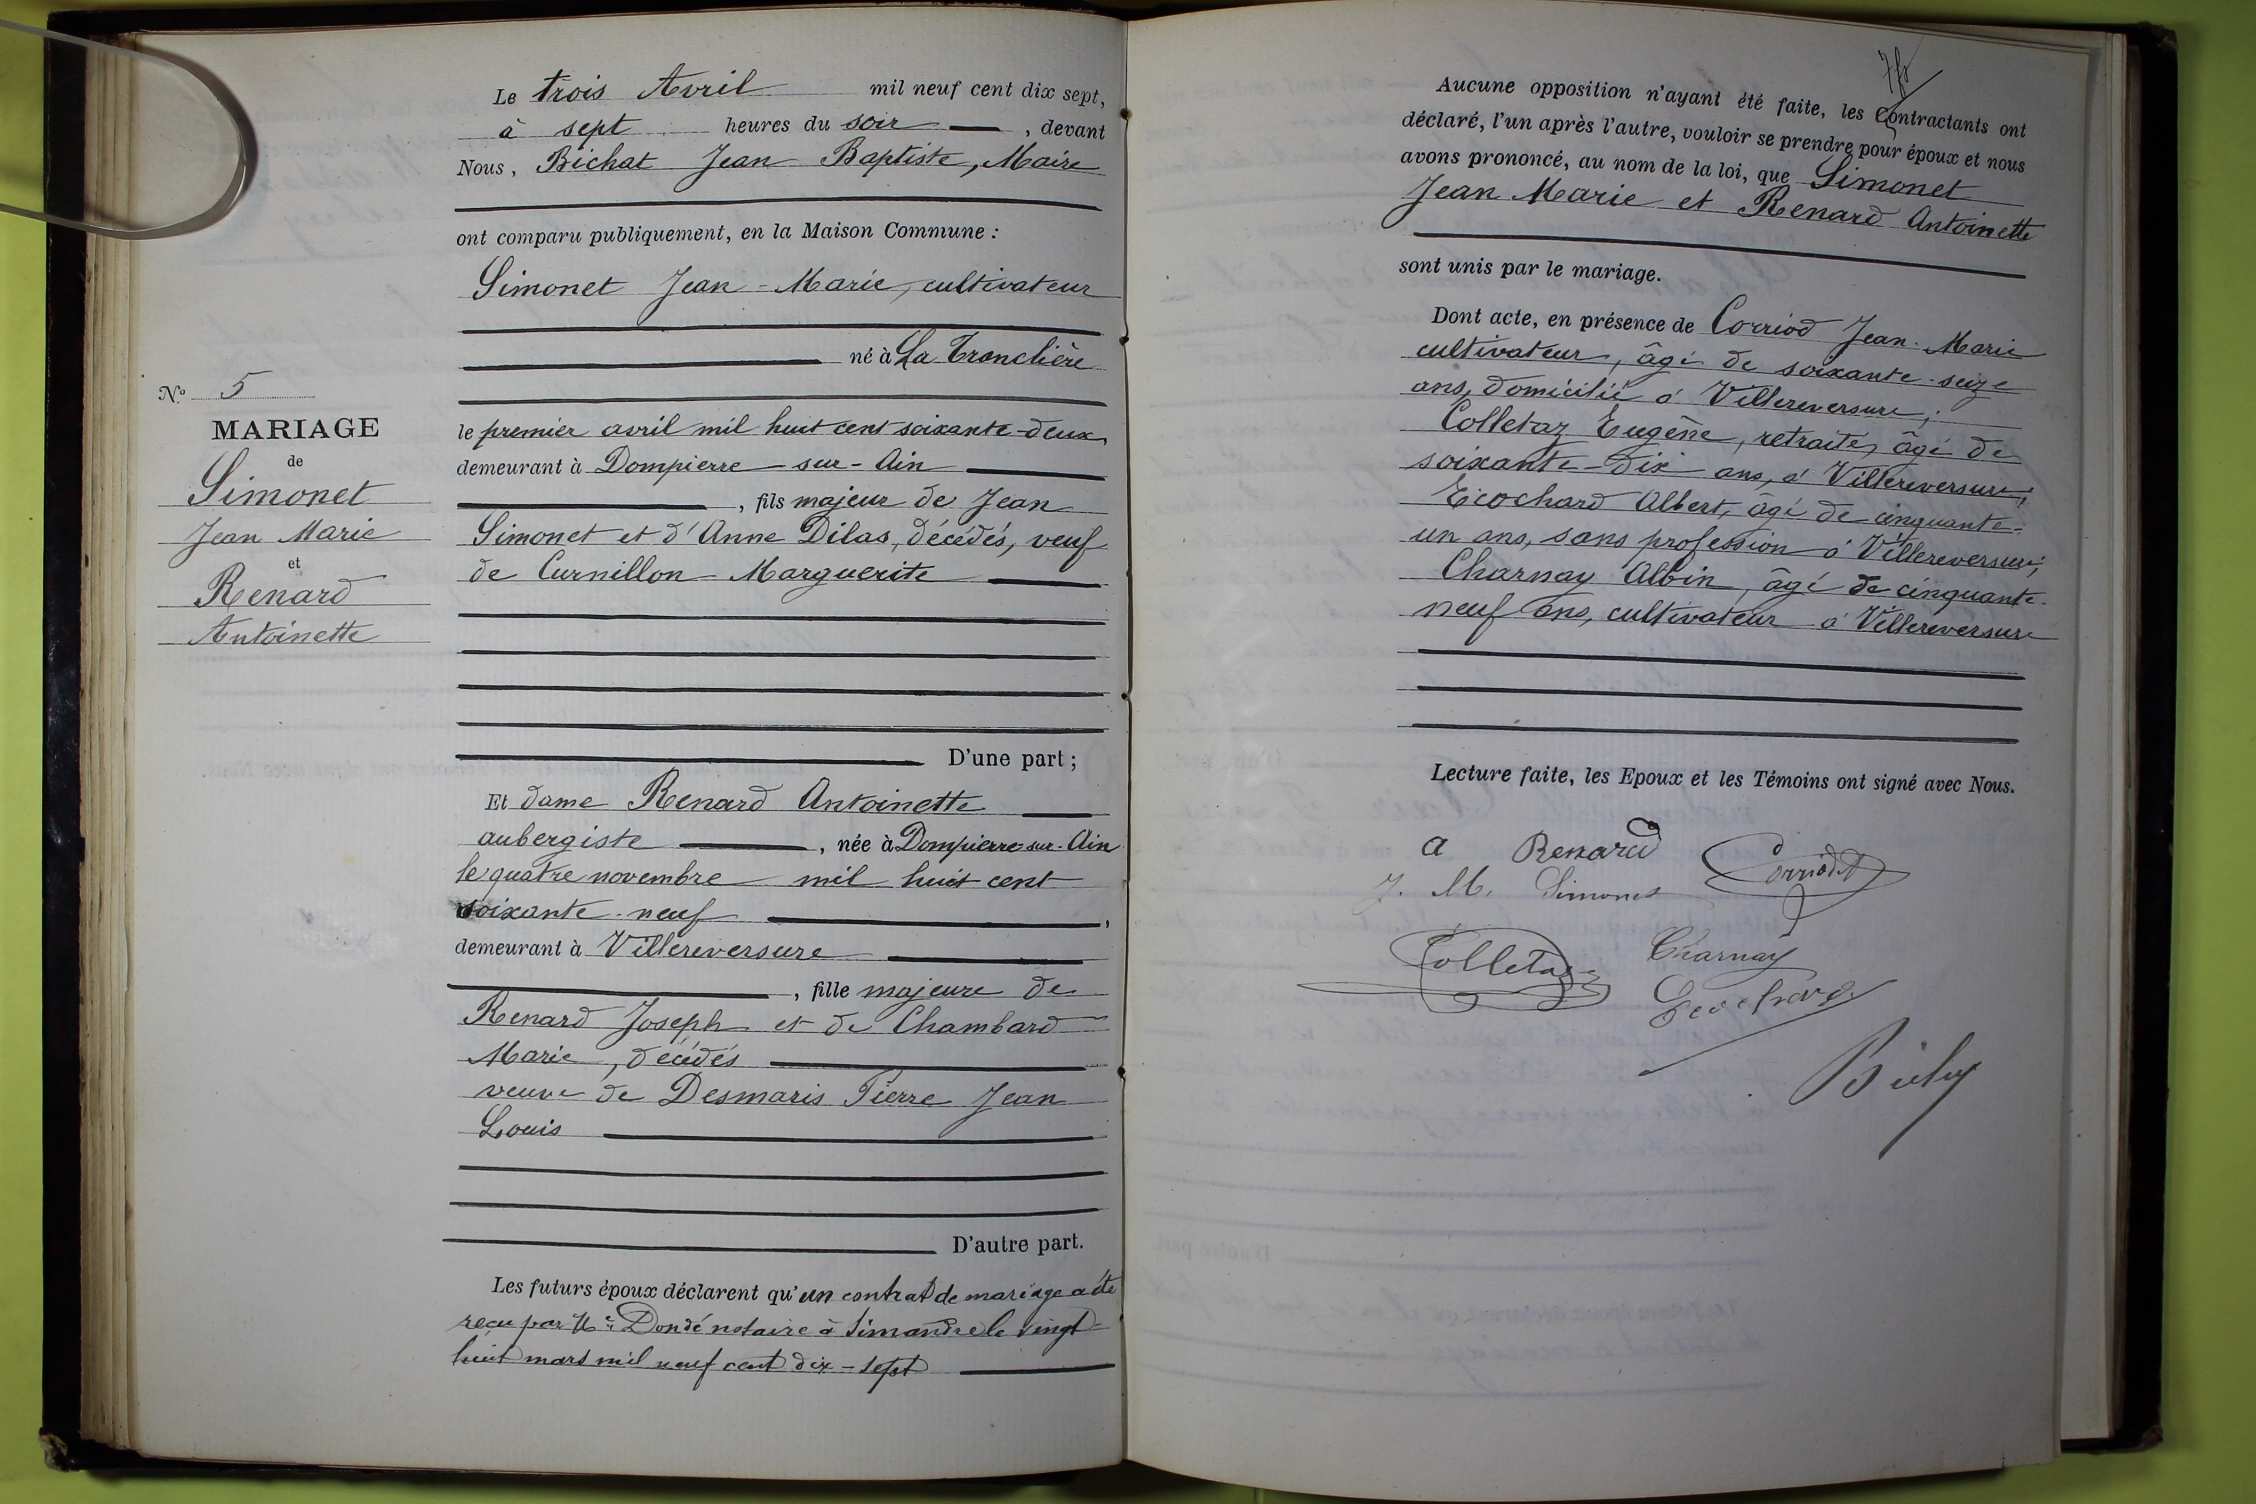 N.º 5
MARIAGE
de
Simonet
Jean Marie
et
Renard
Antoinette
Le trois Avril mil neuf cent dix sept,
à sept heures du soir , devant
Nous, Bichat Jean Baptiste, Maire
ont comparu publiquement, en la Maison Commune :
Simonet Jean-Marie, cultivateur
né à La Tranclière
le premier avril mil huit cent soixante-deux,
demeurant à Dompierre-sur-Ain
, fils majeur de Jean
Simonet et d'Anne Dilas, décédés, veuf
de Curnillon Marguerite
D'une part ;
Et dame Renard Antoinette
aubergiste , née à Dompierre-sur-Ain
le quatre novembre mil huit cent
soixante-neuf ,
demeurant à Villereversure
, fille majeure de
Renard Joseph et de Chambard
Marie, décédés
veuve de Desmaris Pierre Jean
Louis
D'autre part.
Les futurs époux déclarent qu'un contrat de mariage a été
reçu par Me Dondé notaire à Simandre le vingt-
huit mars mil neuf cent dix-sept
Aucune opposition n'ayant été faite, les Contractants ont
déclaré, l'un après l'autre, vouloir se prendre pour époux et nous
avons prononcé, au nom de la loi, que Simonet
Jean Marie et Renard Antoinette
sont unis par le mariage.
Dont acte, en présence de Corriod Jean-Marie
cultivateur, âgé de soixante-seize
ans, domicilié à Villereversure ;
Colletaz Eugène, retraité, âgé de
soixante-dix ans, à Villereversure ;
Ecochard Albert, âgé de cinquante-
un ans, sans profession à Villereversure ;
Charnay Albin, âgé de cinquante-
neuf ans, cultivateur à Villereversure
Lecture faite, les Epoux et les Témoins ont signé avec Nous.
a Renard Corriod
J. M. Simonet
Colletaz Charnay
Ecochard